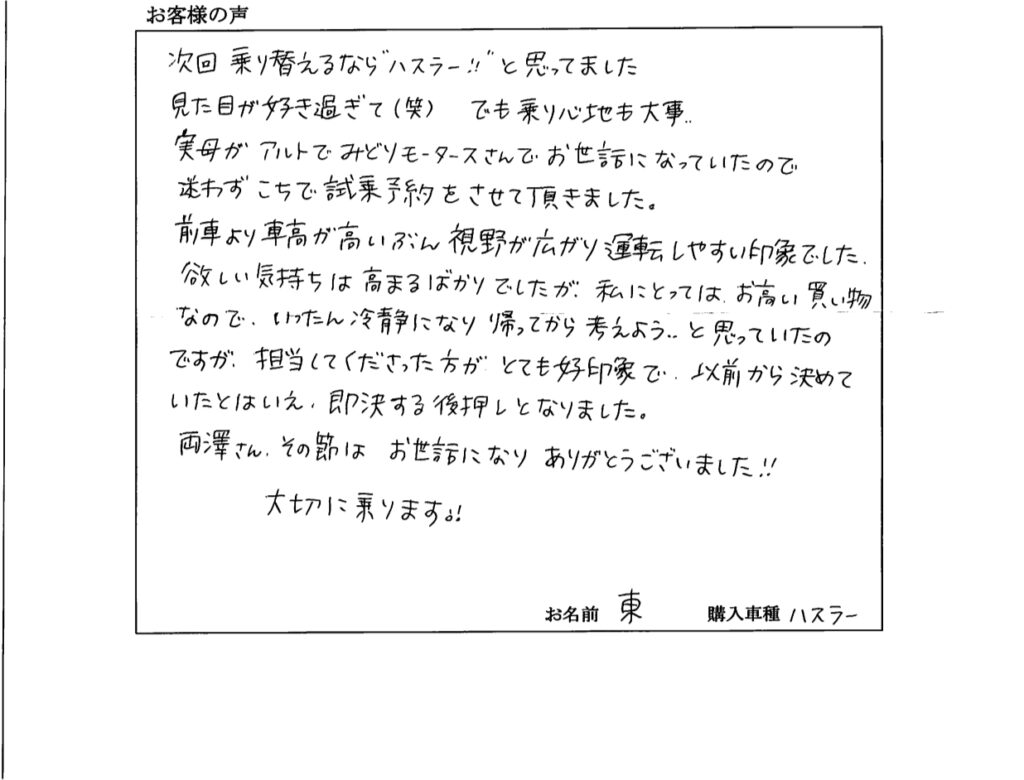 お客様の声
次回 乗り替えるなら"ハスラー!!"と思ってました
見た目が好き過ぎて(笑) でも乗り心地も大事..
実母が アルトで みどりモータースさんで お世話になっていたので
迷わず こちで 試乗予約をさせて頂きました。
前車より車高が高いぶん 視野が広がり 運転しやすい印象でした.
欲しい気持ちは 高まるばかりでしたが. 私にとっては. お高い買い物
なので. いったん冷静になり 帰ってから 考えよう.. と思っていたの
ですが. 担当してくださった方が とても好印象で. 以前から決めて
いたとはいえ. 即決する後押しとなりました。
両澤さん. その節は お世話になり ありがとうございました!!
大切に乗ります。!
お名前 東 購入車種 ハスラー